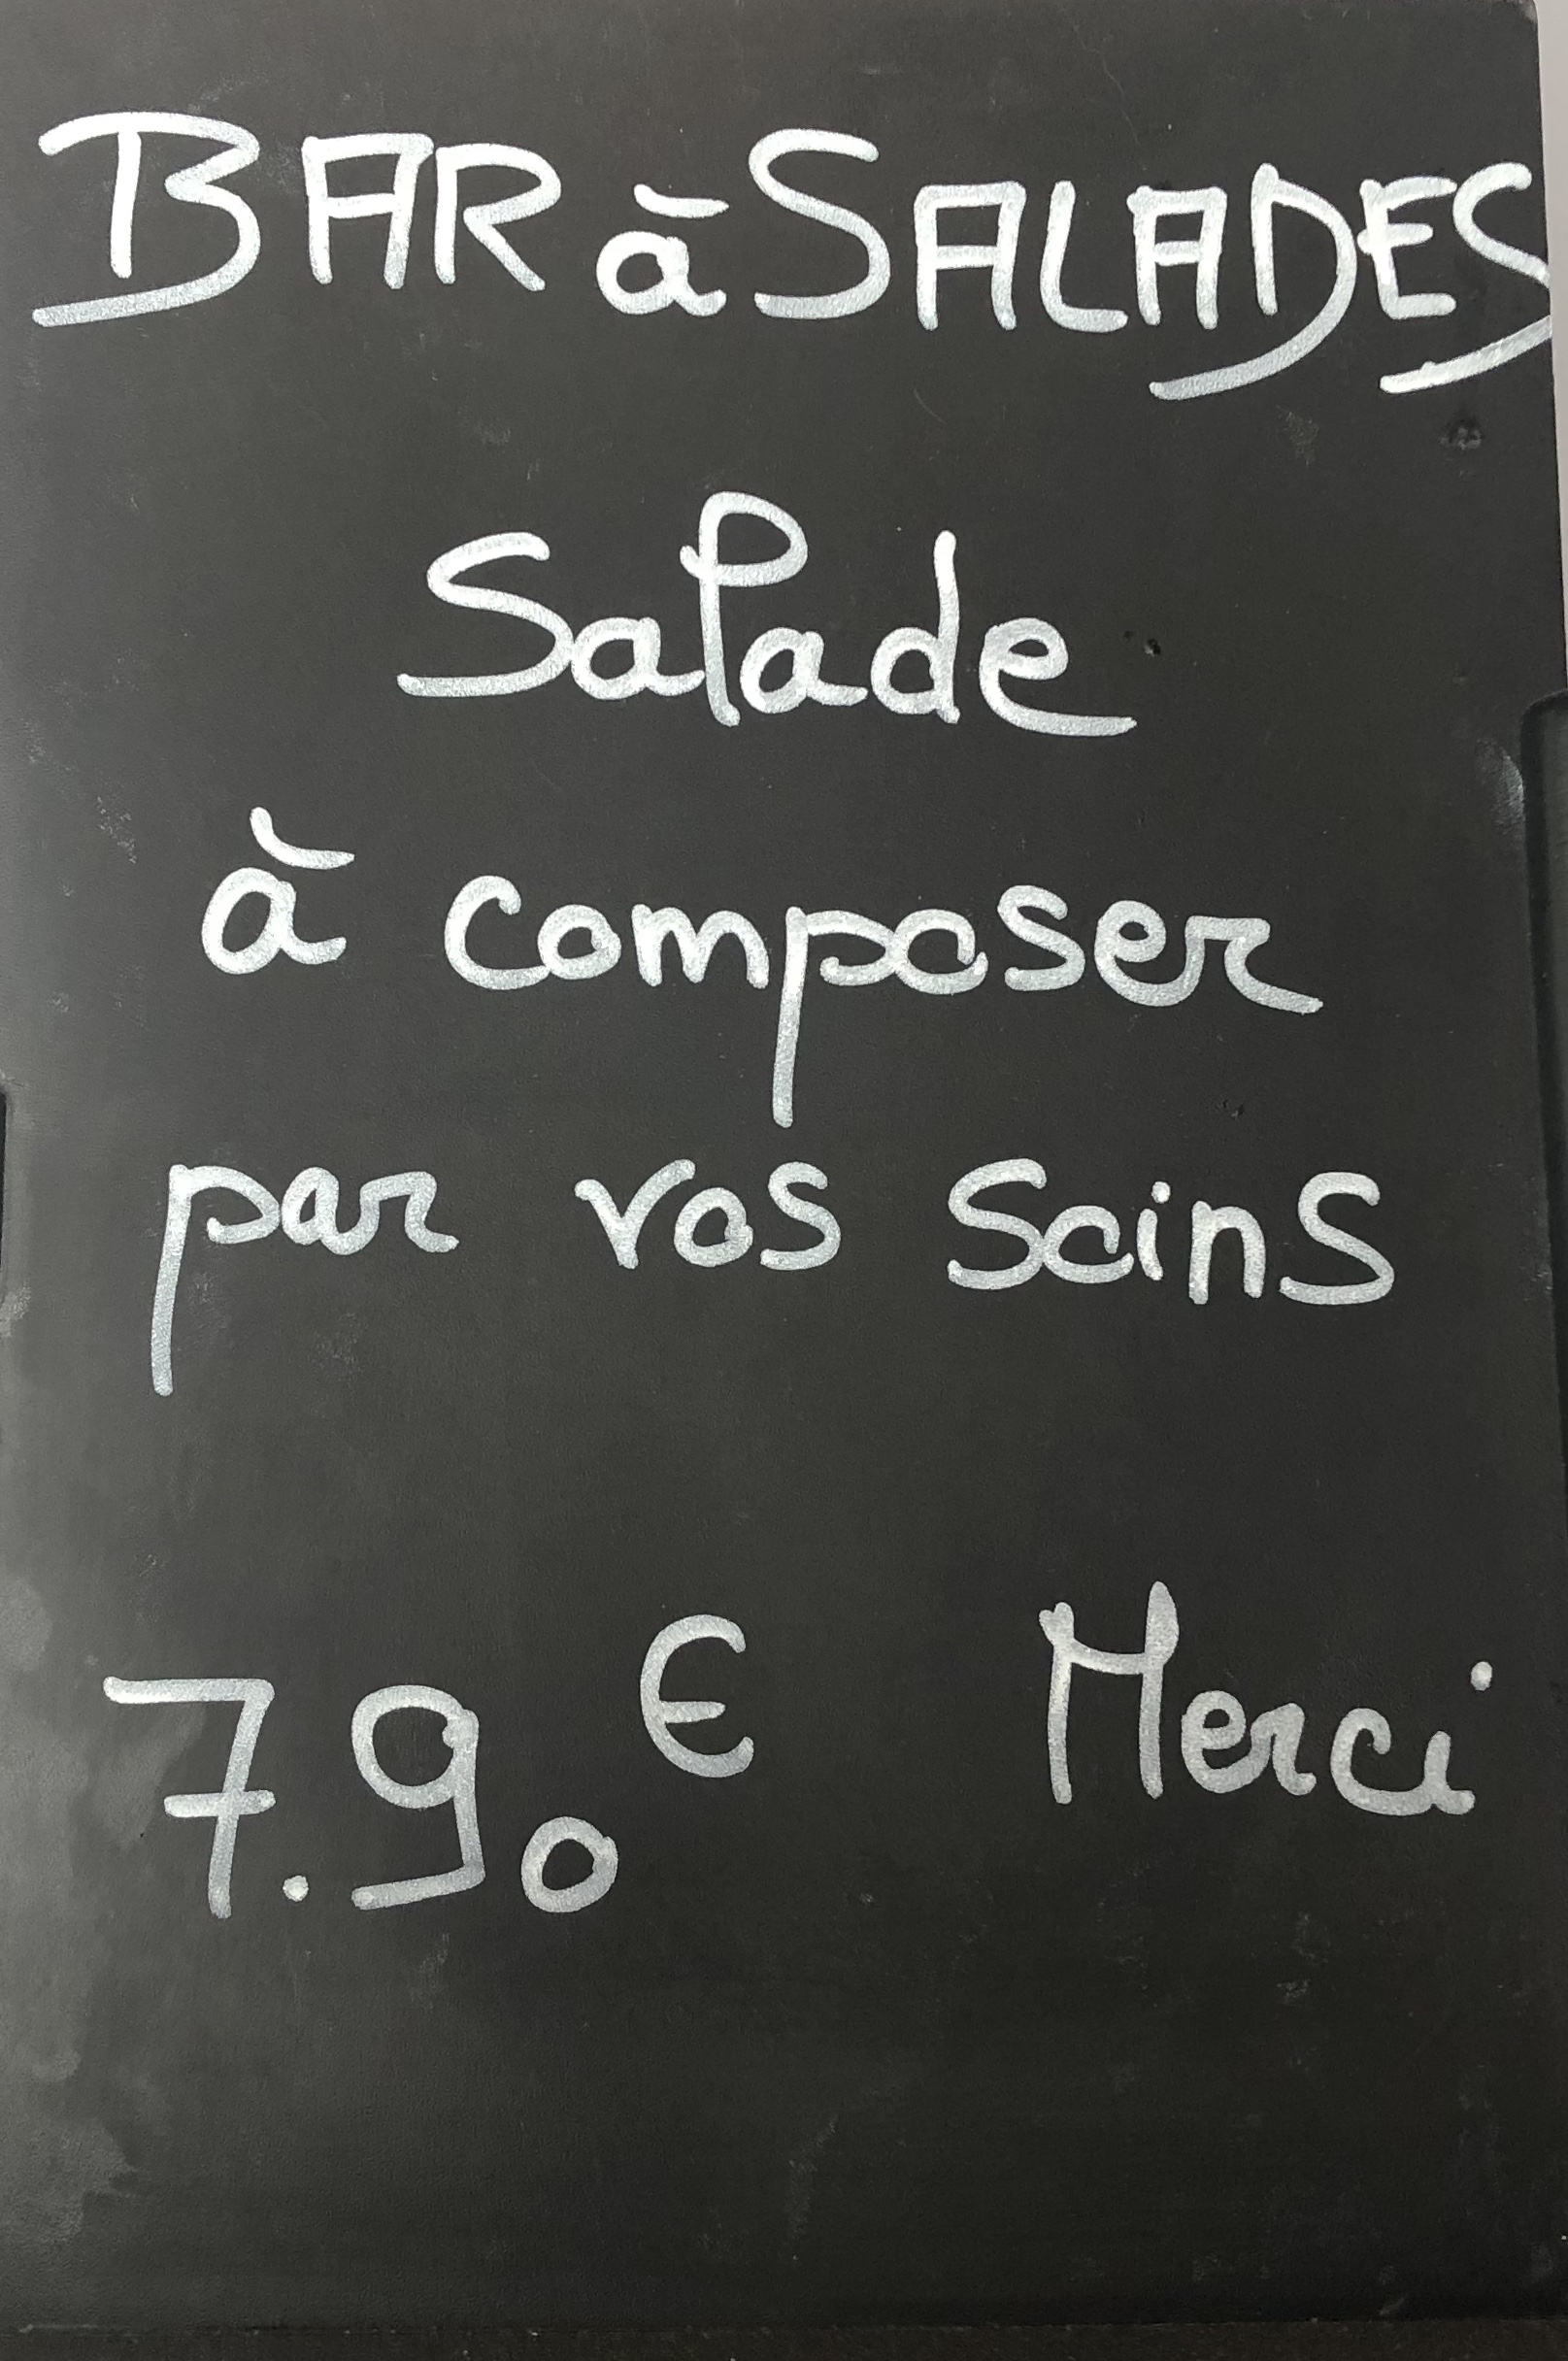 BAR à SALADES
Salade
à composer
par vos soins
7.90 € Merci